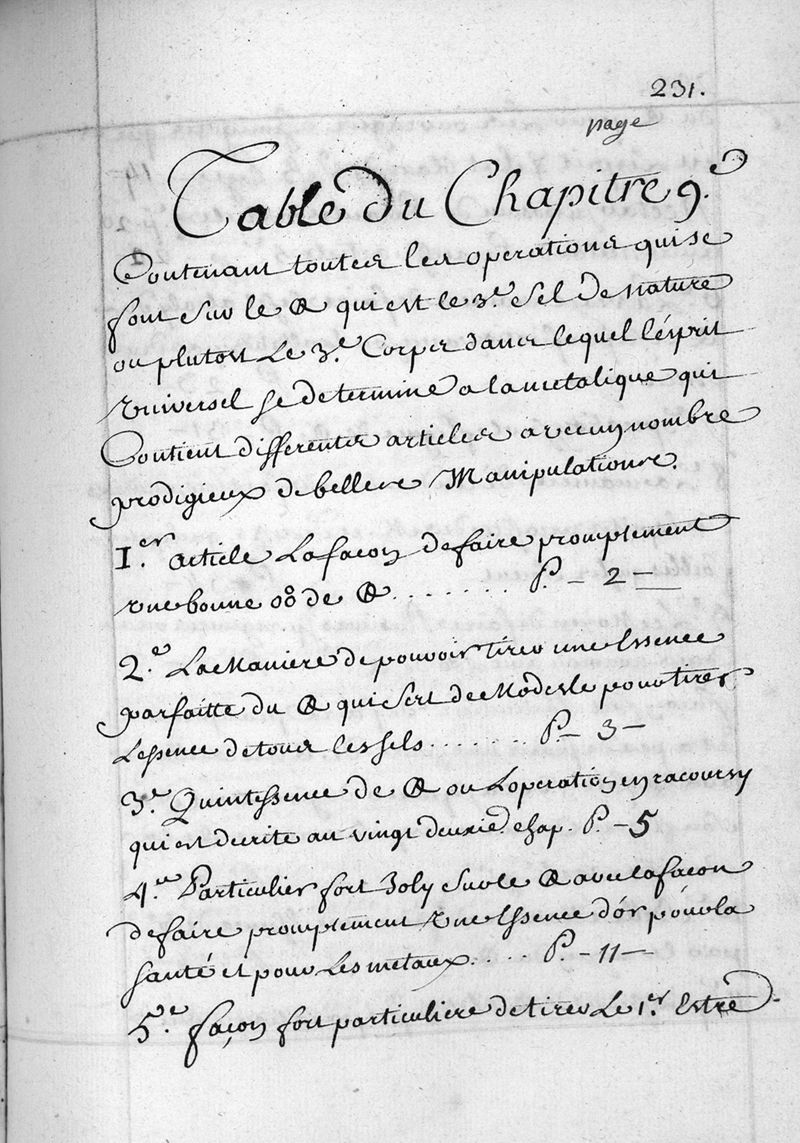 231.
page
Table du Chapitre 9.e
Contenant toutes les operations qui se
font sur le qui est le 3.e sel de nature
ou plutost Le 3.e Corps dans lequel l'ésprit
universel se determine a la metalique qui
Contient differents articles avec un nombre
prodigieux de belles Manipulations.
1.er article La façon de faire promptement
une bonne de ....... P. - 2 —
2.e La Maniere de pouvoir tirer une Essence
parfaitte du qui sert de Modesle pour tirer
L'essence de tous les sels ....... P. - 3 -
3.e Quintessence de ou Loperation en racoursy
qui est decrite au vingt deuxie. chap. P. - 5
4.e Particulier fort Joly sur le avec la façon
de faire promptement une Essence d'ór póur la
santé et pour Les metaux ..... P. - 11 —
5.e façon fort particuliere de tirer Le 1.er Estre